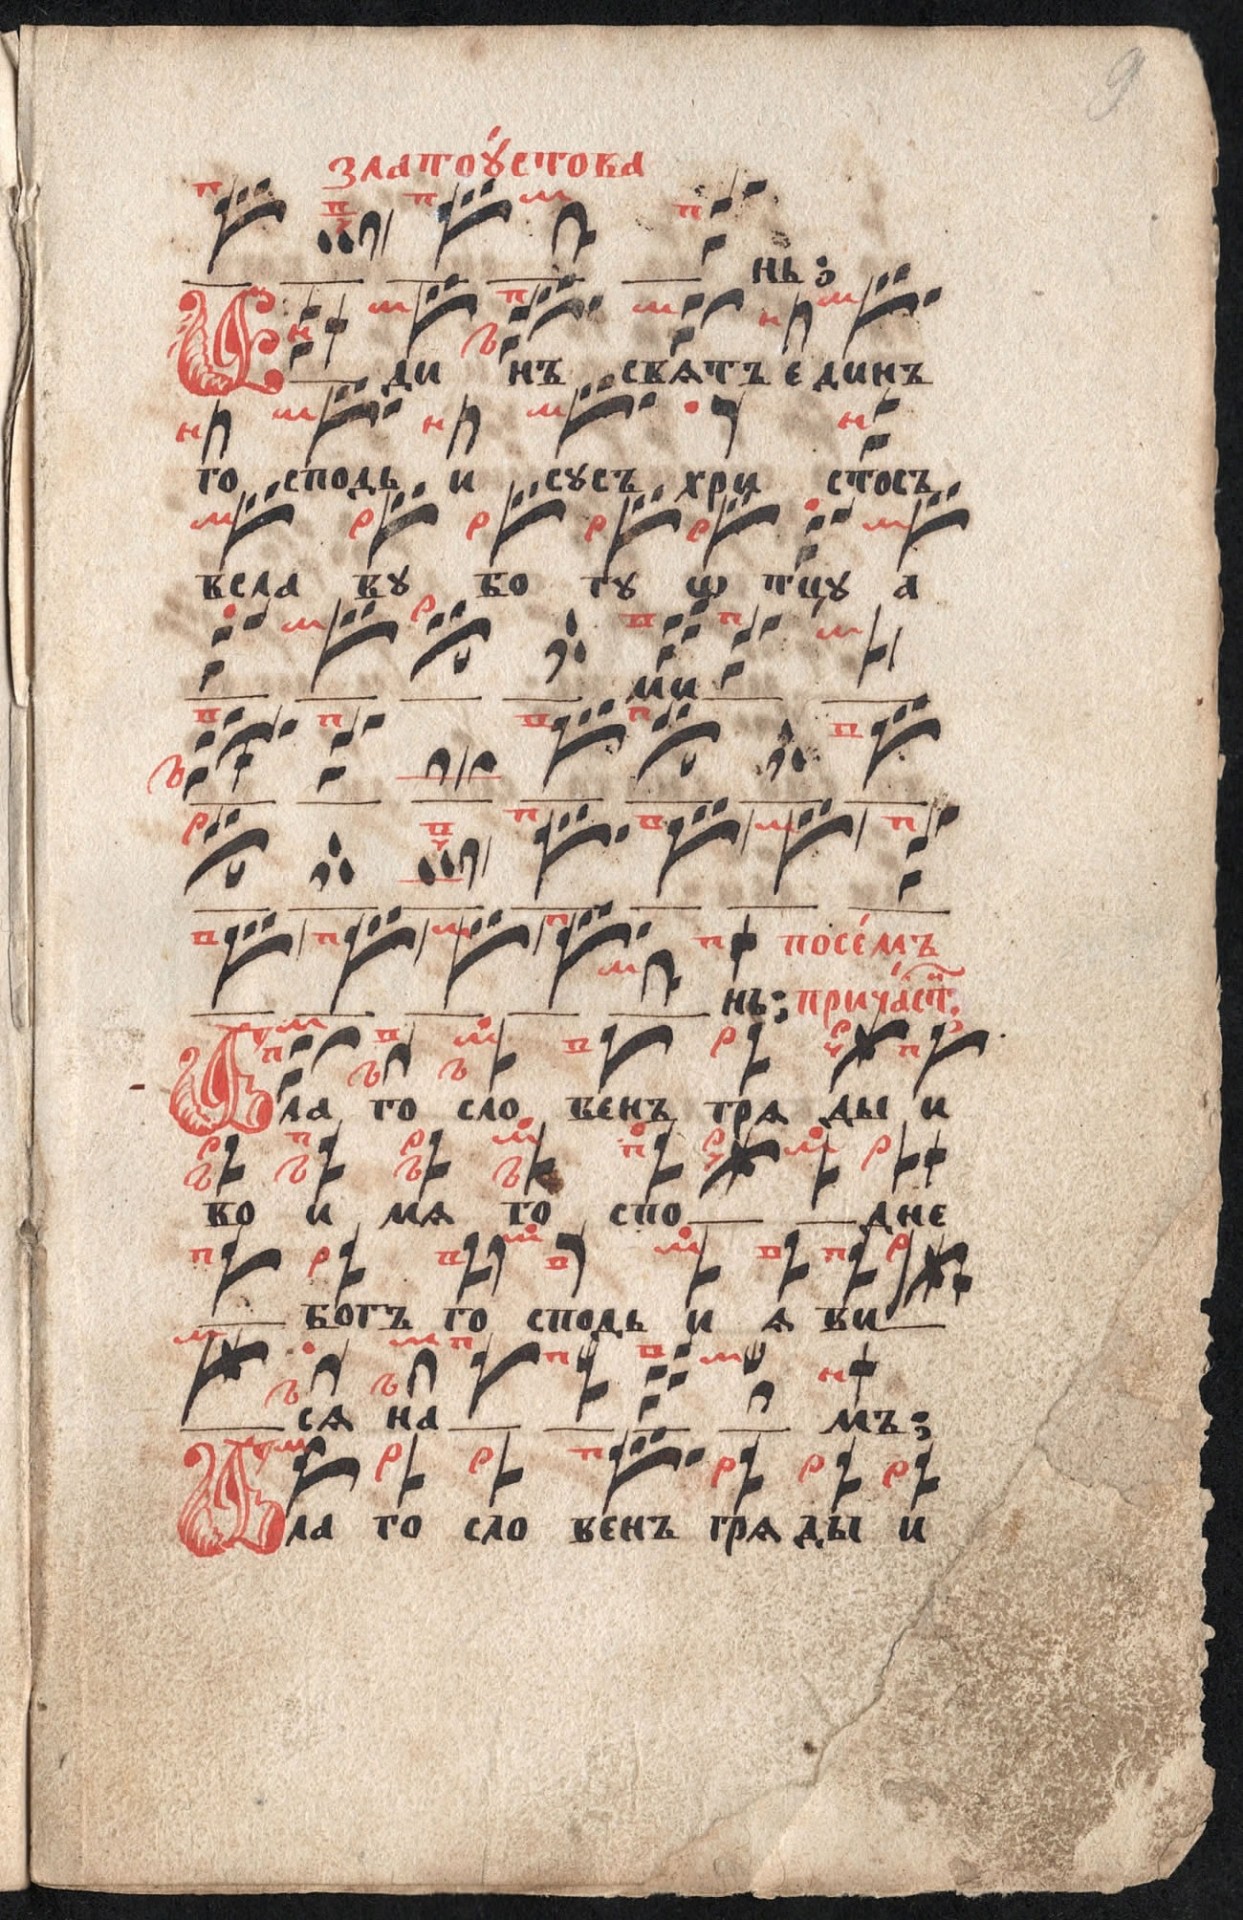 9
златоꙋ́стова
нь:
Е ди нъ свѧтъ единъ
го сподь и сусъ хри стосъ
всла ву бо гу ѿ тцу а
ми
нь: посе́мъ
прича́ст.
Бла го сло венъ грѧ ды и
во и мѧ го спо дне
богъ го сподь и ѧ ви
сѧ на мъ:
Бла го сло венъ грѧ ды и